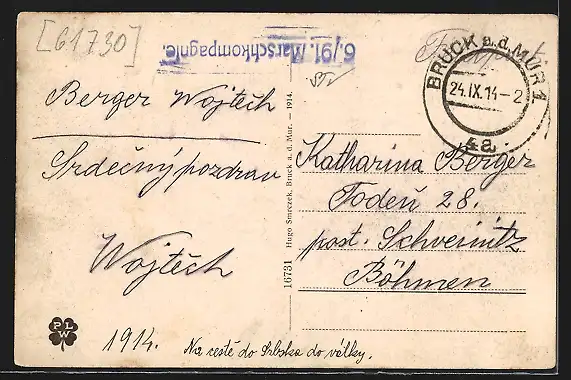 [61730]
6./91. Marschkompagnie.
Feldpost
BRUCK a.d. MUR 1
24.IX.14-2
4a
Berger Wojtěch
Srdečný pozdrav
Wojtěch
1914.
Na cestě do Srbska do války.
PLW
16731 Hugo Smeczek, Bruck a. d. Mur. — 1914.
Katharina Berger
Todeň 28.
post. Schweinitz
Böhmen